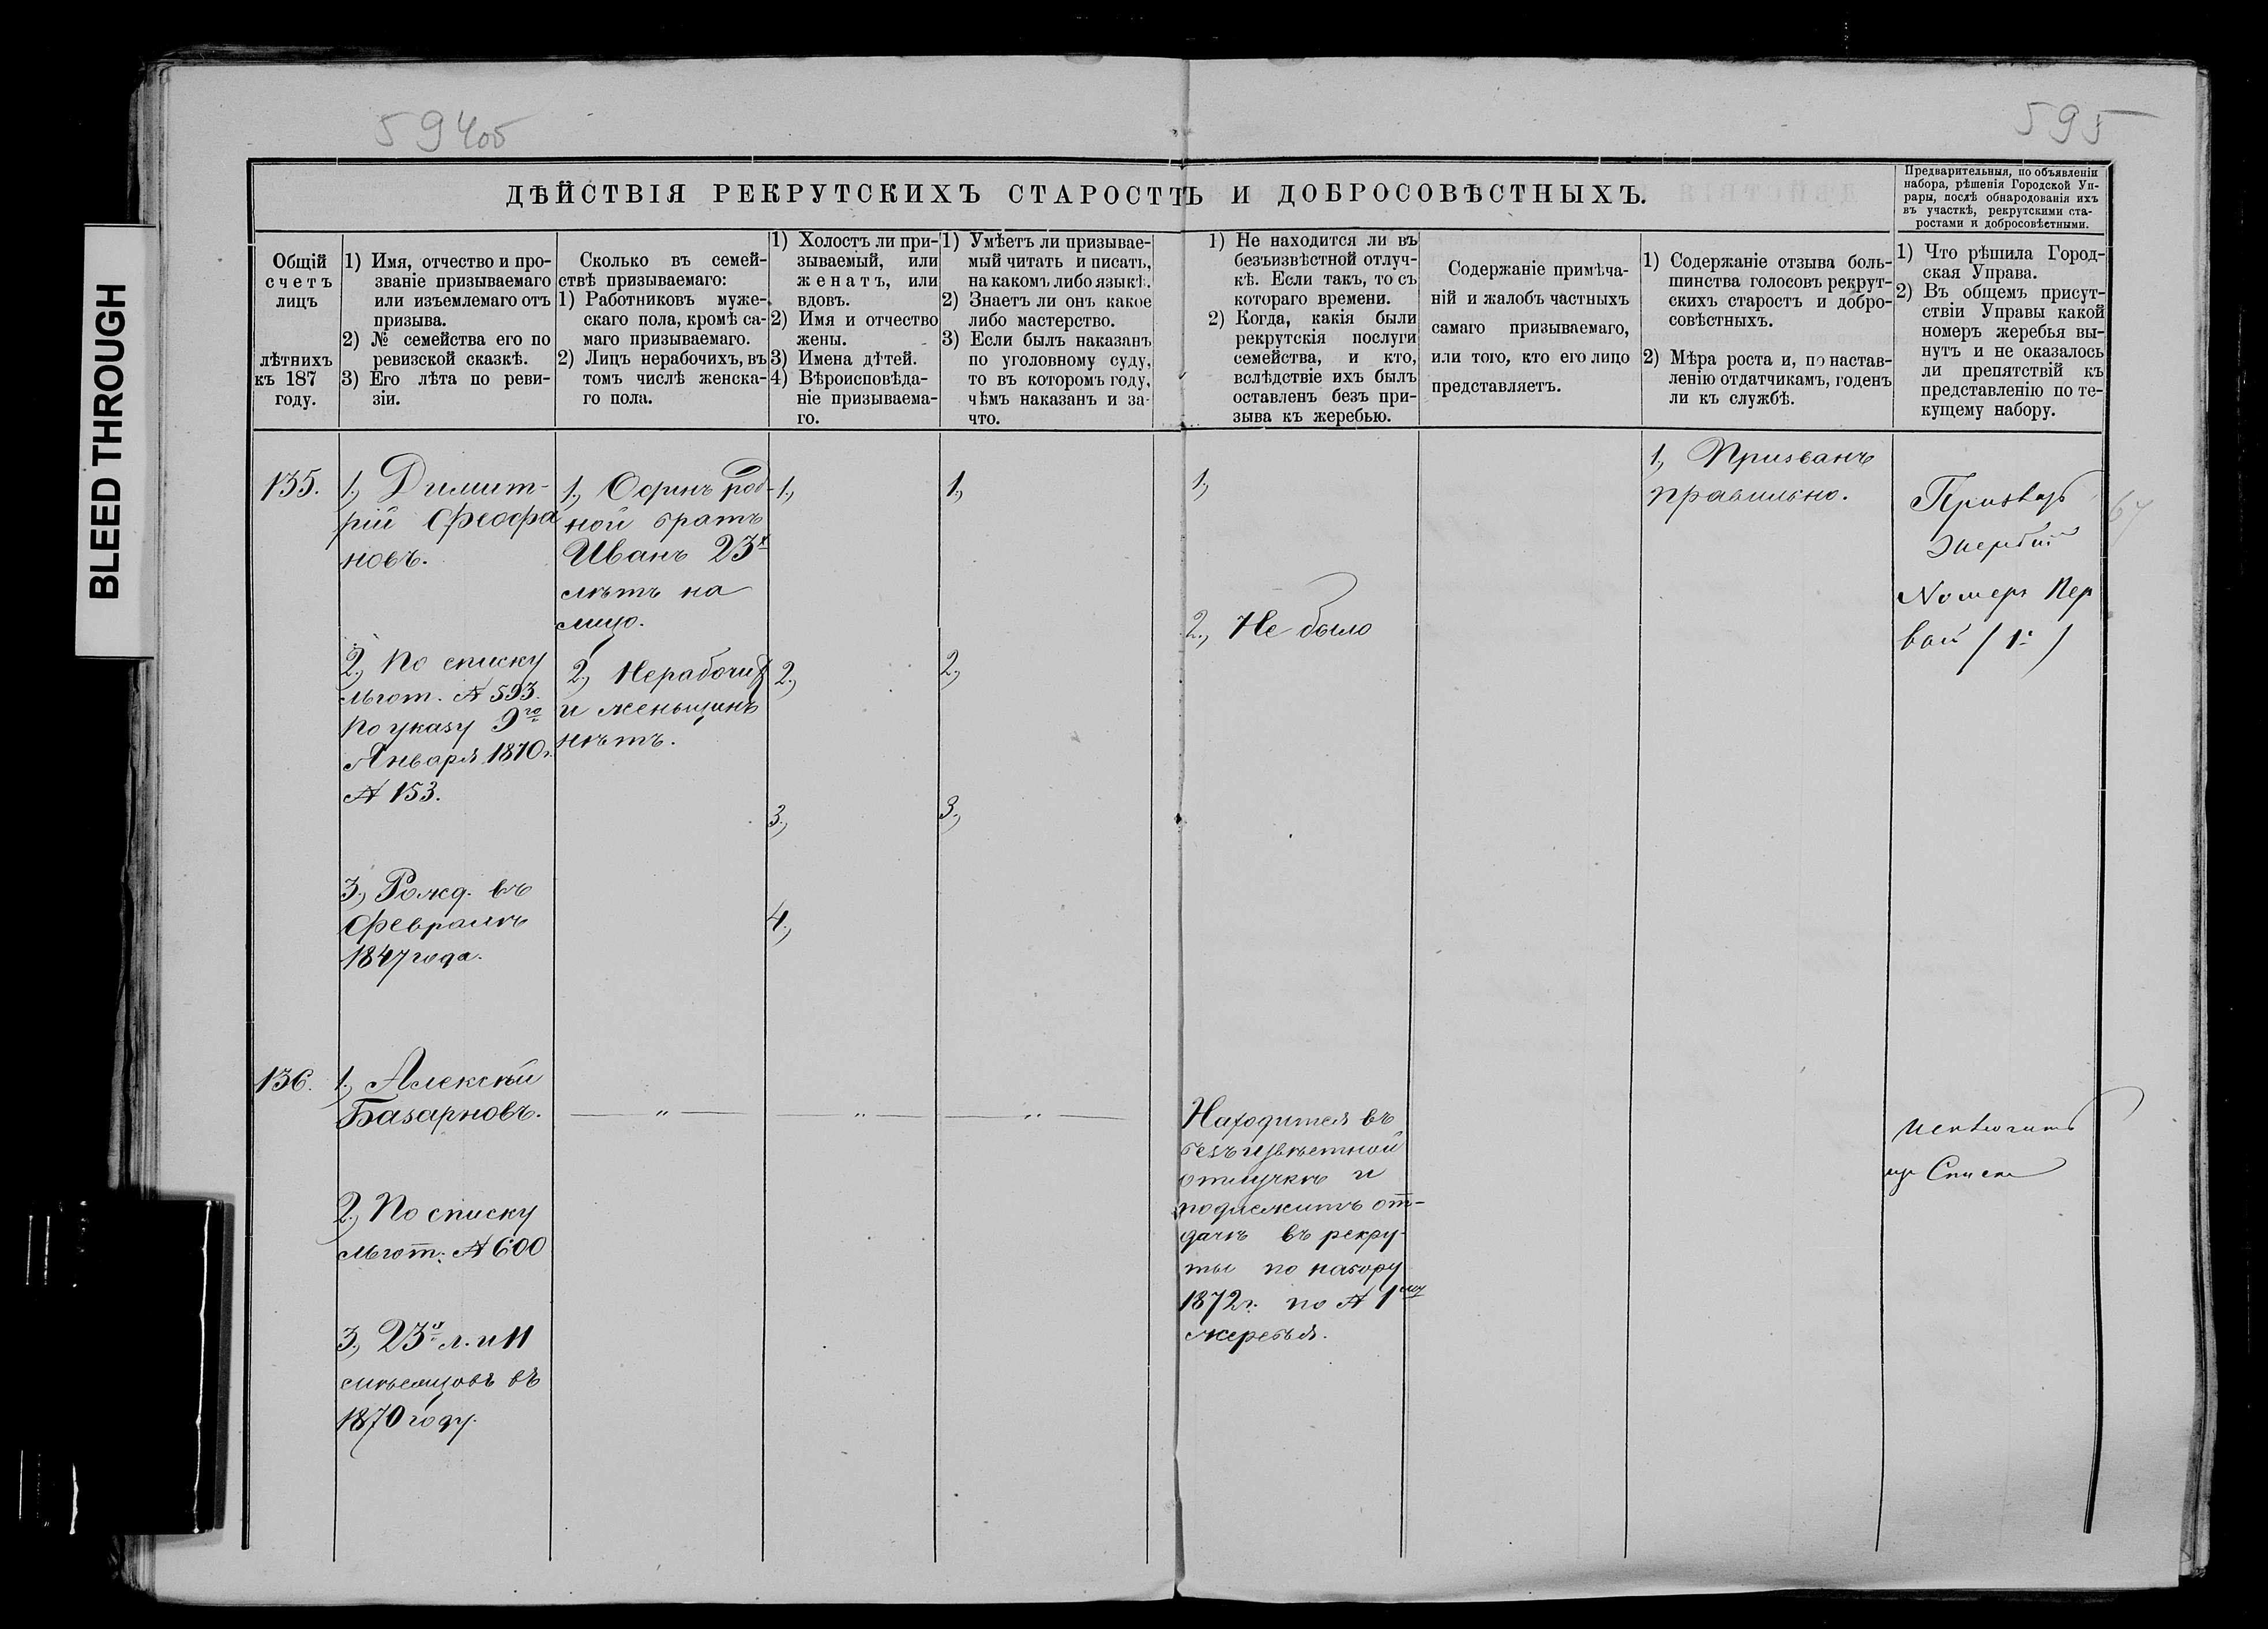 594об
595
ДѢЙСТВІЯ РЕКРУТСКИХЪ СТАРОСТЪ И ДОБРОСОВѢСТНЫХЪ.
Предварительныя, по объявленіи
набора, рѣшенія Городской Уп-
рары, послѣ обнародованія ихъ
въ участкѣ, рекрутскими ста-
ростами и добросовѣстными.
Общій
счетъ
лицъ
лѣтнихъ
къ 187
году.
1) Имя, отчество и про-
званіе призываемаго
или изъемлемаго отъ
призыва.
2) № семейства его по
ревизской сказкѣ.
3) Его лѣта по реви-
зіи.
Сколько въ семей-
ствѣ призываемаго:
1) Работниковъ муже-
скаго пола, кромѣ са-
маго призываемаго.
2) Лицъ нерабочихъ, въ
томъ числѣ женска-
го пола.
1) Холостъ ли при-
зываемый, или
женатъ, или
вдовъ.
2) Имя и отчество
жены.
3) Имена дѣтей.
4) Вѣроисповѣда-
ніе призываема-
го.
1) Умѣетъ ли призывае-
мый читать и писать,
на какомъ либо языкѣ.
2) Знаетъ ли онъ какое
либо мастерство.
3) Если былъ наказанъ
по уголовному суду,
то въ которомъ году,
чѣмъ наказанъ и за-
что.
1) Не находится ли въ
безъизвѣстной отлуч-
кѣ. Если такъ, то съ
котораго времени.
2) Когда, какія были
рекрутскія послуги
семейства, и кто,
вслѣдствіе ихъ былъ
оставленъ безъ при-
зыва къ жеребью.
Содержаніе примѣча-
ній и жалобъ частныхъ
самаго призываемаго,
или того, кто его лицо
представляетъ.
1) Содержаніе отзыва боль-
шинства голосовъ рекрут-
скихъ старостъ и добро-
совѣстныхъ.
2) Мѣра роста и, по настав-
ленію отдатчикамъ, годенъ
ли къ службѣ.
1) Что рѣшила Город-
ская Управа.
2) Въ общемъ присут-
ствіи Управы какой
номеръ жеребья вы-
нутъ и не оказалось
ли препятствій къ
представленію по те-
кущему набору.
135.
1., Димит-
рій Феофа
новъ.
2., По списку
льгот. № 593.
По указу 9го
Января 1870г.
№ 153.
3., Рожд. въ
Февралѣ
1847 года.
1., Одинъ род-
ной братъ
Иванъ 23х
лѣтъ на
лицо.
2., Нерабочих
и женьщинъ
нѣтъ.
1.,
2.,
3.,
4.,
1.,
2.,
3.,
1.,
2., Не было
1., Призванъ
правильно.
Призвать
Жербий
Nомеръ Пер
вой (1й)
67
136.
1., Алексѣй
Базарновъ.
2., По списку
льгот. № 600
3., 23х л. и 11
мѣсяцовъ въ
1870 году.
— " — — " — — " —
Находится въ
безъизвѣстной
отлучкѣ и
подлежитъ от-
дачѣ въ рекру-
ты по набору
1872г. по № 1му
жеребья.
Исключить
изъ Списка
BLEED THROUGH